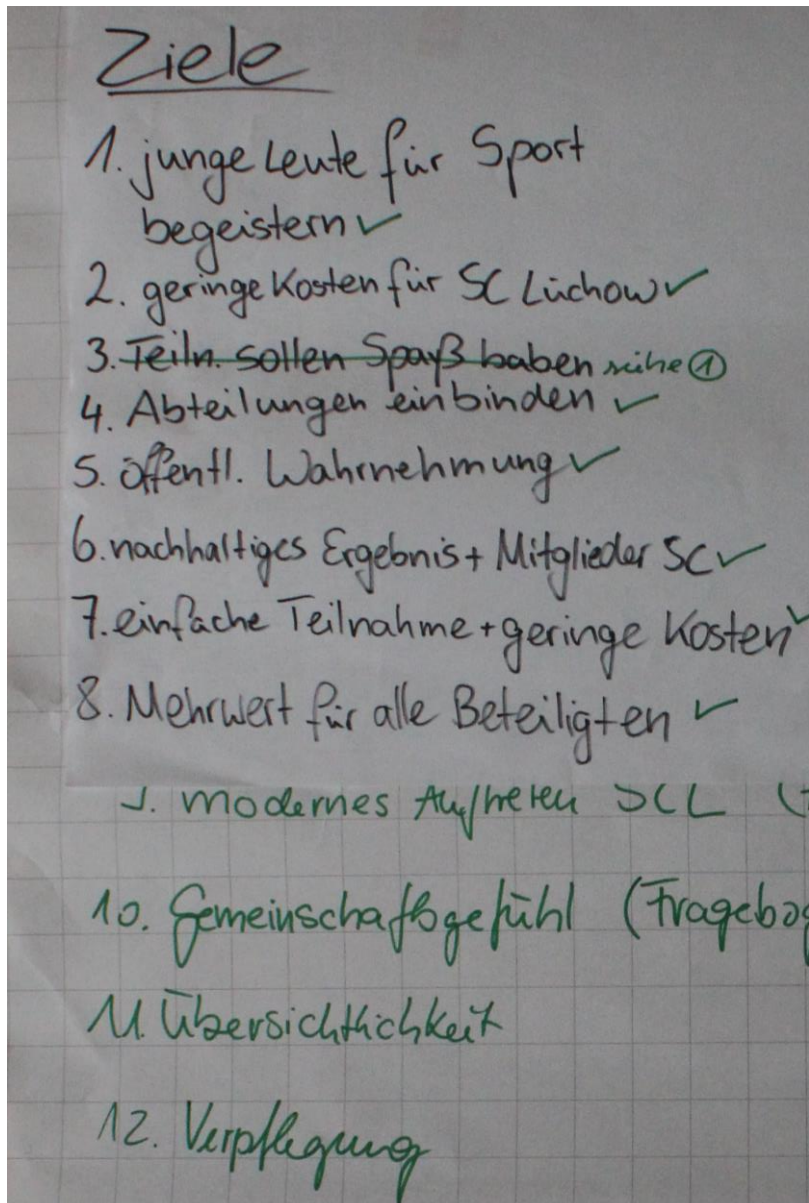 Ziele
1. junge Leute für Sport
begeistern ✓
2. geringe Kosten für SC Lüchow ✓
3. Teiln. sollen Spaß haben siehe ①
4. Abteilungen einbinden ✓
5. öffentl. Wahrnehmung ✓
6. nachhaltiges Ergebnis + Mitglieder SC ✓
7. einfache Teilnahme + geringe Kosten ✓
8. Mehrwert für alle Beteiligten ✓
9. modernes Auftreten SCL (
10. Gemeinschaftsgefühl (Fragebog
11. Übersichtlichkeit
12. Verpflegung